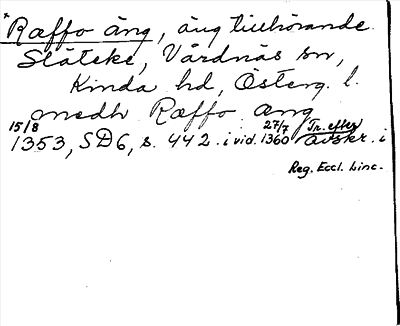 *Ræffo äng, äng tillhörande
Släteke, Vårdnäs sn,
Kinda hd, Österg. l.
medh Ræffo æng
15/8 1353, SD6, s. 442. i vid. 27/7 1360 Tr. efter avskr. i
Reg. Eccl. Linc.